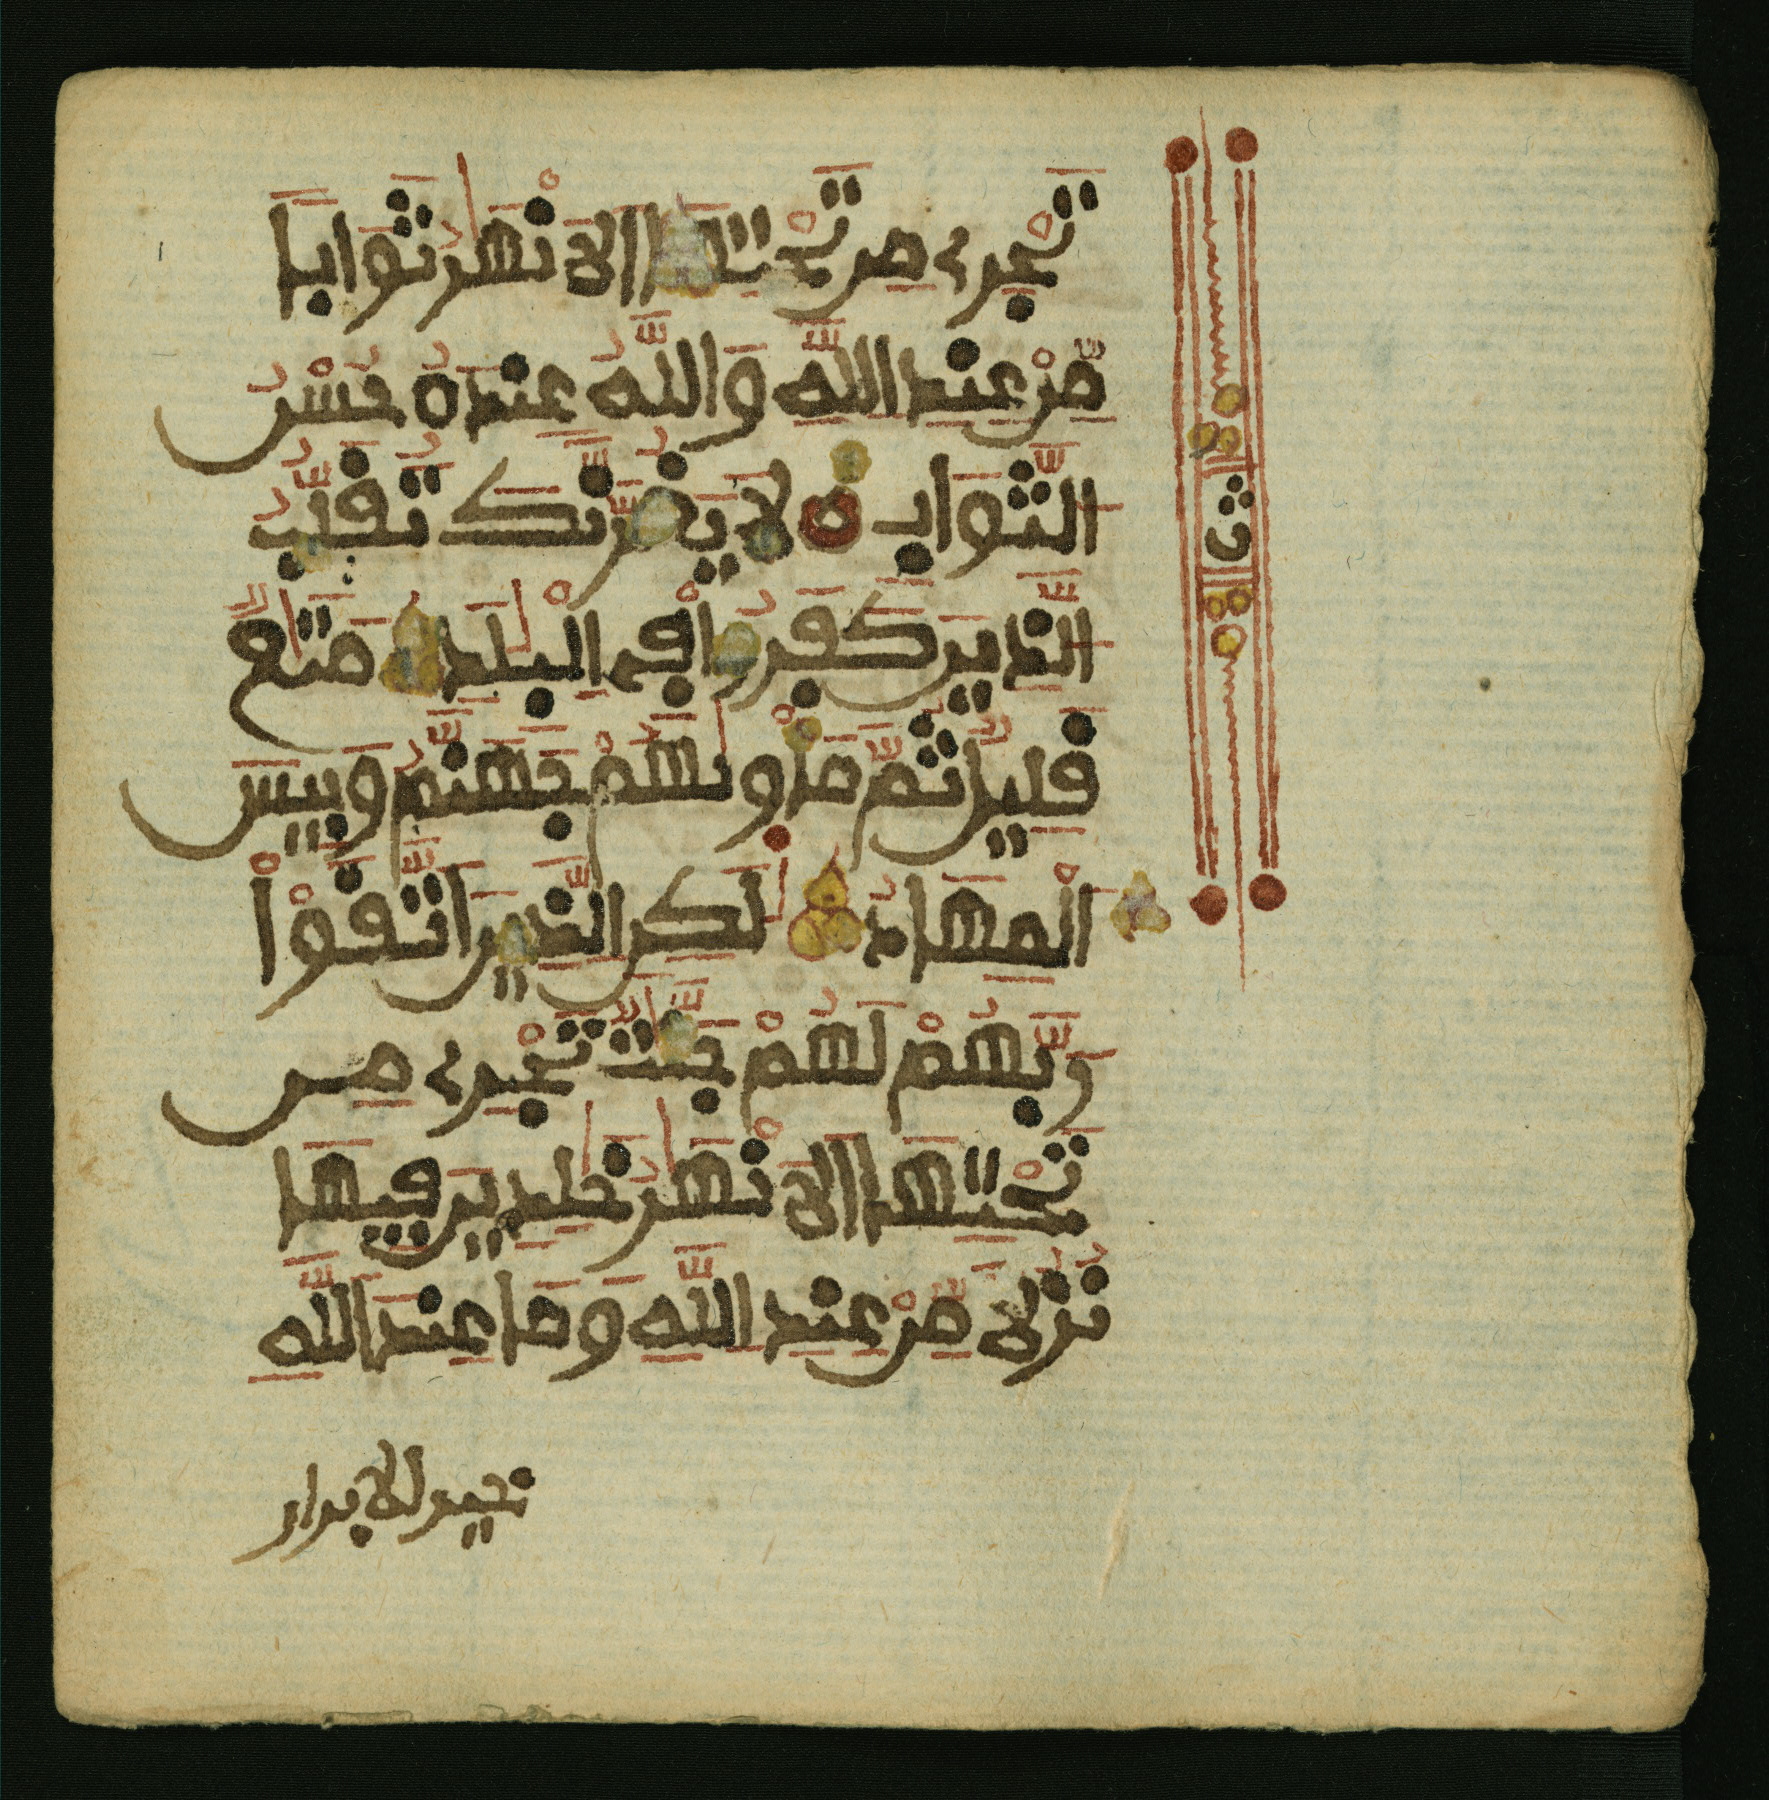 تَجْرِے مِن تَحْتِهَا اَلَانْهَٰرُ ثَوَابا
مِّنْ عِندِ اِللَّهِ وَاللَّهُ عِندَهُ حُسْنُ
الثَّوَابِ لَا يَغُرَّنَّكَ تَقَلُّبُ
الَّذِينَ كَفَرُوا فِے اِلْبِلَٰدِ مَتَٰعٌ
قَلِيلٌ ثُمَّ مَأْوٜىٰهُمْ جَهَنَّمُ وَبِيسَ
اَلْمِهَادُ لَٰكِنِ الذِينَ اَتَّقَوْاْ
رَبَّهُمْ لَهُمْ جَنَّٰتٌ تَجْرِے مِن
تَحْتِهَا اَلَانْهَٰرُ خَٰلِدِينَ فِيهَا
نُزُلا مِّنْ عِندِ اِللَّهِ وَمَا عِندَ اَللَّهِ
خير للابرار
ث